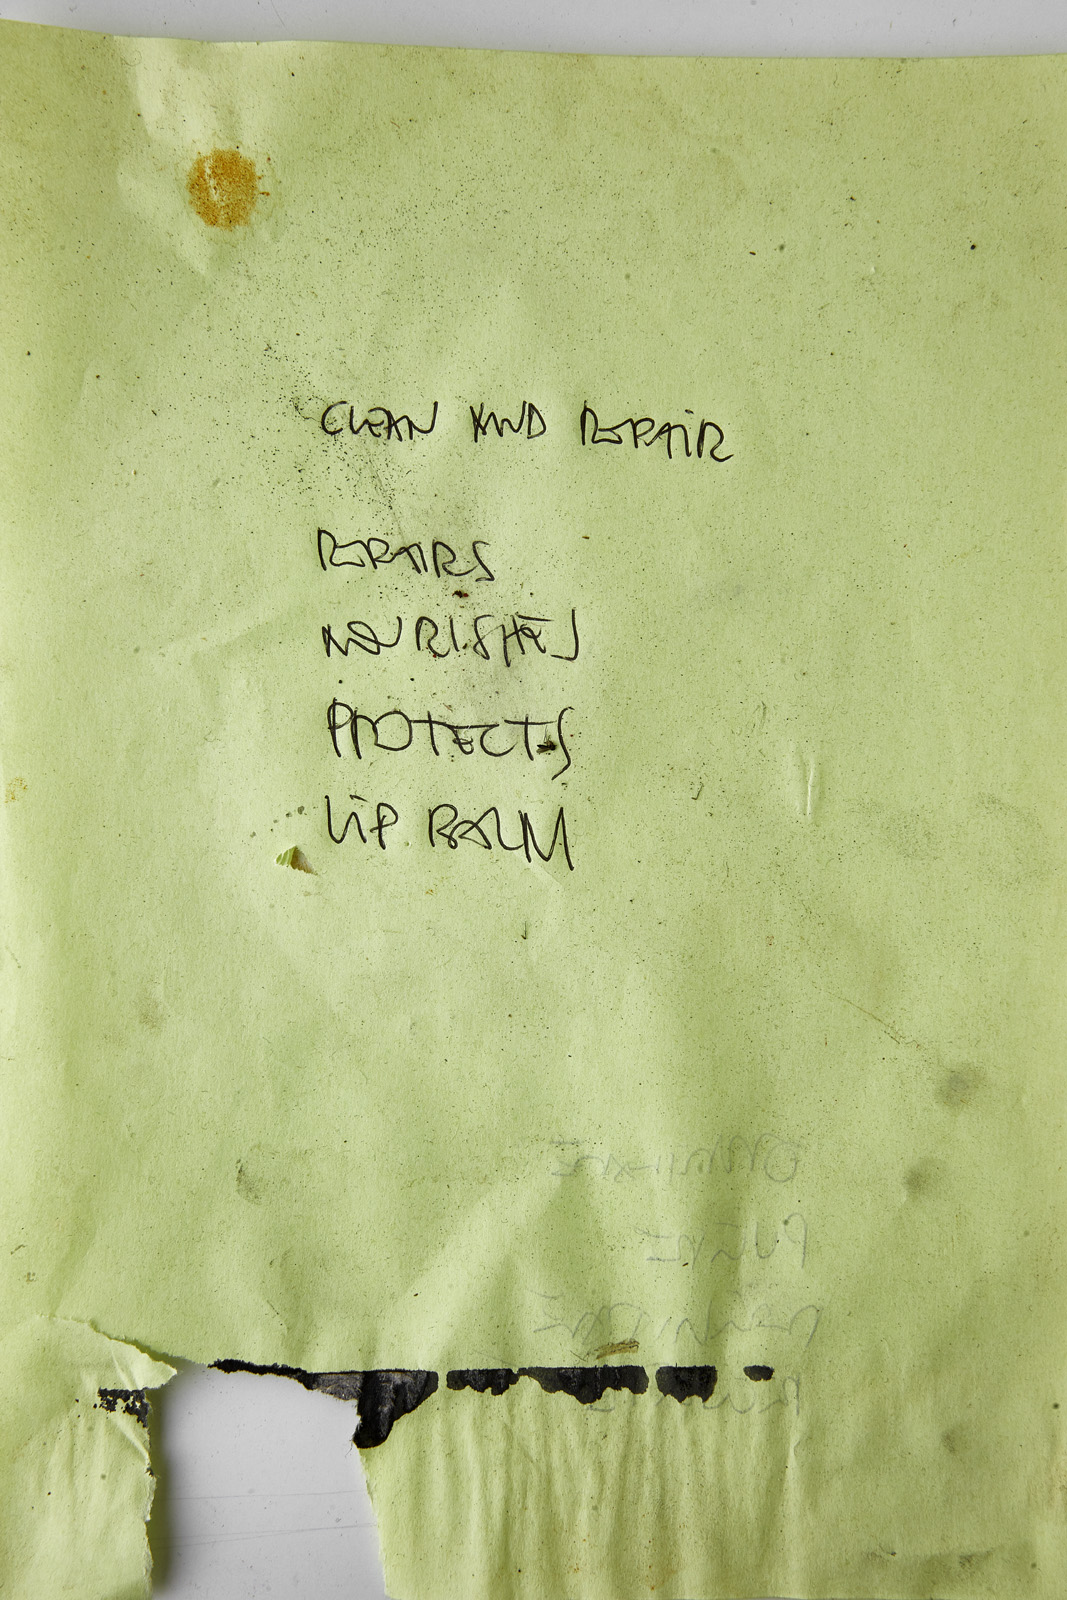 CLEAN AND REPAIR
REPAIRS
NOURISHES
PROTECTS
LIP BALM